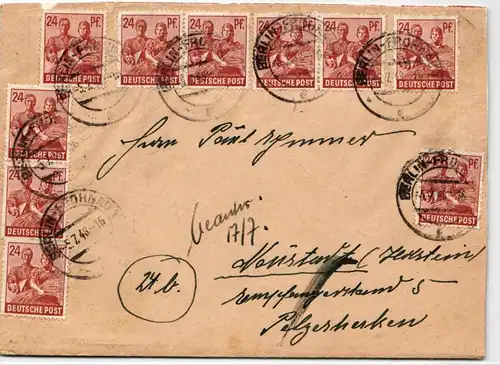 24 PF. 24 PF. 24 PF. 24 PF. 24 PF. PF.
DEUTSCHE POST DEUTSCHE POST DEUTSCHE POST DEUTSCHE POST DEUTSCHE POST DEUTSCHE POST
24
DEUTSCHE POST
24 PF.
DEUTSCHE POST
24
DEUTSCHE POST
PF.
DEUTSCHE POST
BERLIN-FROHNAU
5.7.48-16
Herrn Paul Sommer
beantw.
17/7.
24b.
Neustadt (Holstein)
Empfangsverband 5
Pelzerhaken